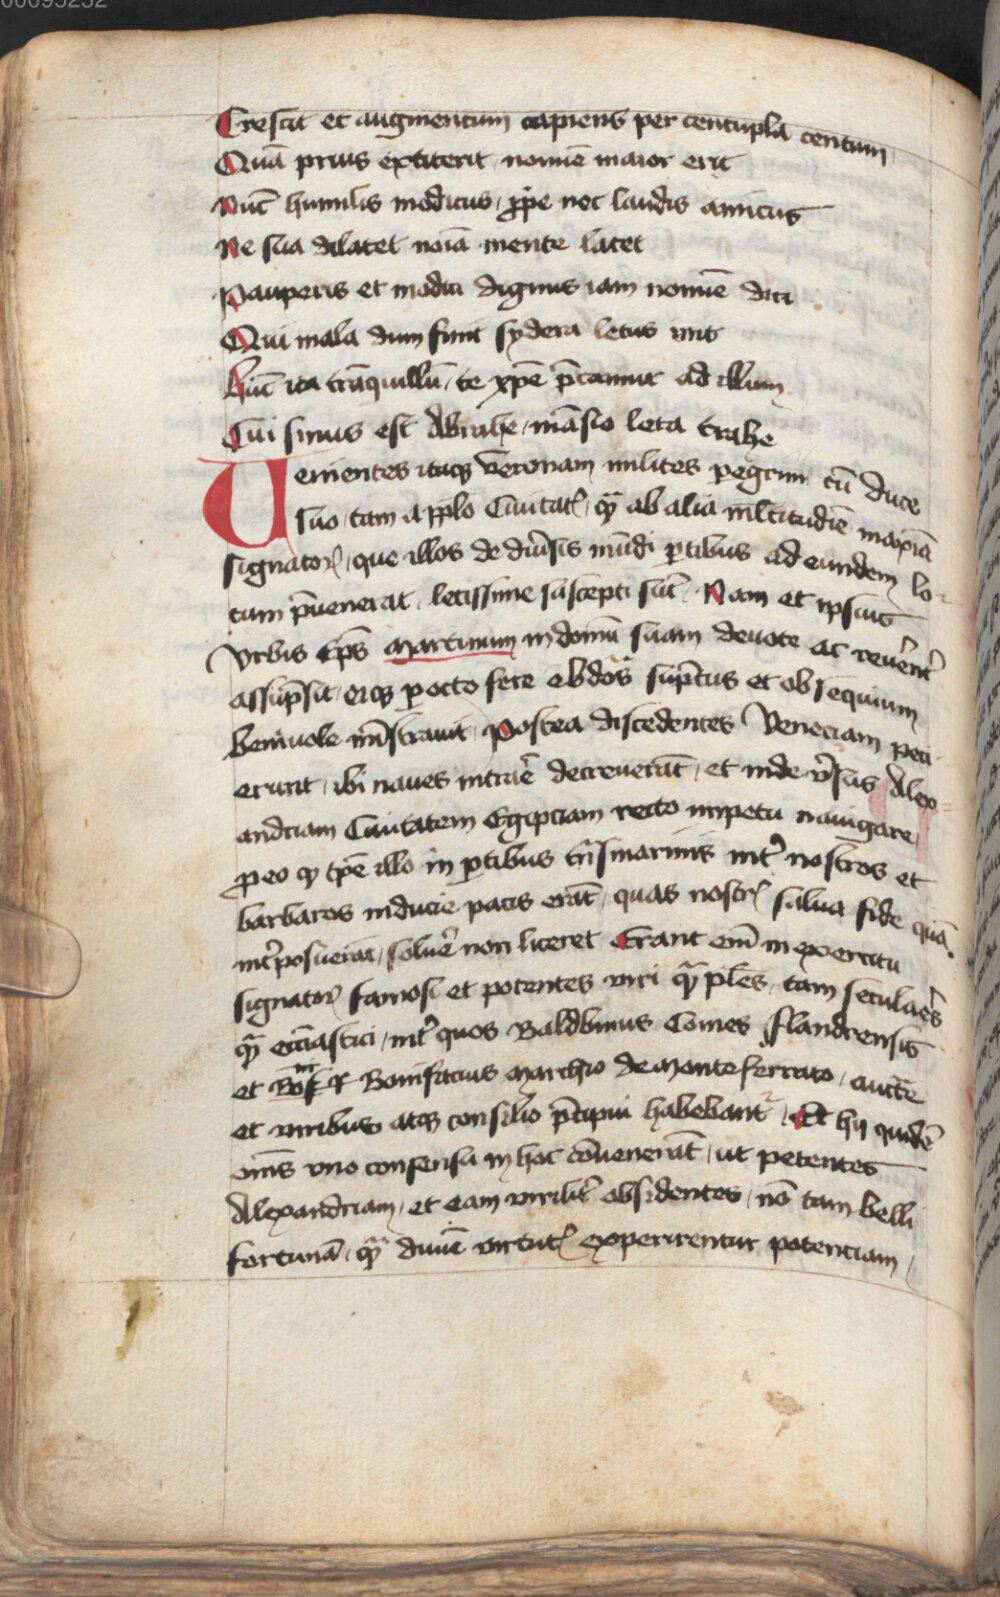 00095232
Crescit et augmentum capiens per centupla centum
Quā prius extiterit nomīe maior erit
Nūc humilis modicus, ꝓpe nec laudis amicus
Ne sua dilatet noīa mente latet
Pauperis et modici dignus iam nomīe dici
Qui mala dum finit sydera letus init
Hūc ita trāquillū, te xpē p̄camur ad illum
Cui sinus est Abrahe, māsio leta trahe
Venientes itaqꝫ Veronam milites pegrini cū duce
suo, tam a pplo Ciuitat̄, qͣ ab alia mltitudīe maxīa
signator̄, que illos de diūsis mūdi ꝑtibus ad eundem lo-
cum p̄uenerat, letissime suscepti sūt. Nam et ipsius
vrbis Ep̄s Martinum in domū suam deuote ac reuēnt̄
assūpsit, eiqꝫ ꝑ octo fere ebdoā sūptus et obsequium
beniuole mīstrauit. Postea discedentes Veneciam peci-
erunt, ibi naues intrāe decreuerāt, et inde v̄sus Alex-
andriam Ciuitatem Egipciam recto impetu nauigare,
ꝓ eo ꝙ tpē illo in ꝑtibus trāsmarinis int̄ nostros et
barbaros inducie pacis erāt, quas nostr̄ salua fide quā
int̄posuerāt, soluēe non liceret. Erant em̄ in exercitu
signator̄ famosi et potentes viri qͣ ples, tam seculaēs
qͣ ecciastici, int̄ quos Baldbinus Comes Flandrensis
et Bonifacius Marchio de Monteferrato, aucte
et viribus atqꝫ consilio p̄cipui habebant̄. Et hij quidē
om̄s vno consensu in hoc cōuenerāt, ut petentes
Alexandriam, et eam virilit̄ obsidentes, nō tam belli
fortunā, qͣ diuīe virtut̄ experirentur potentiam,